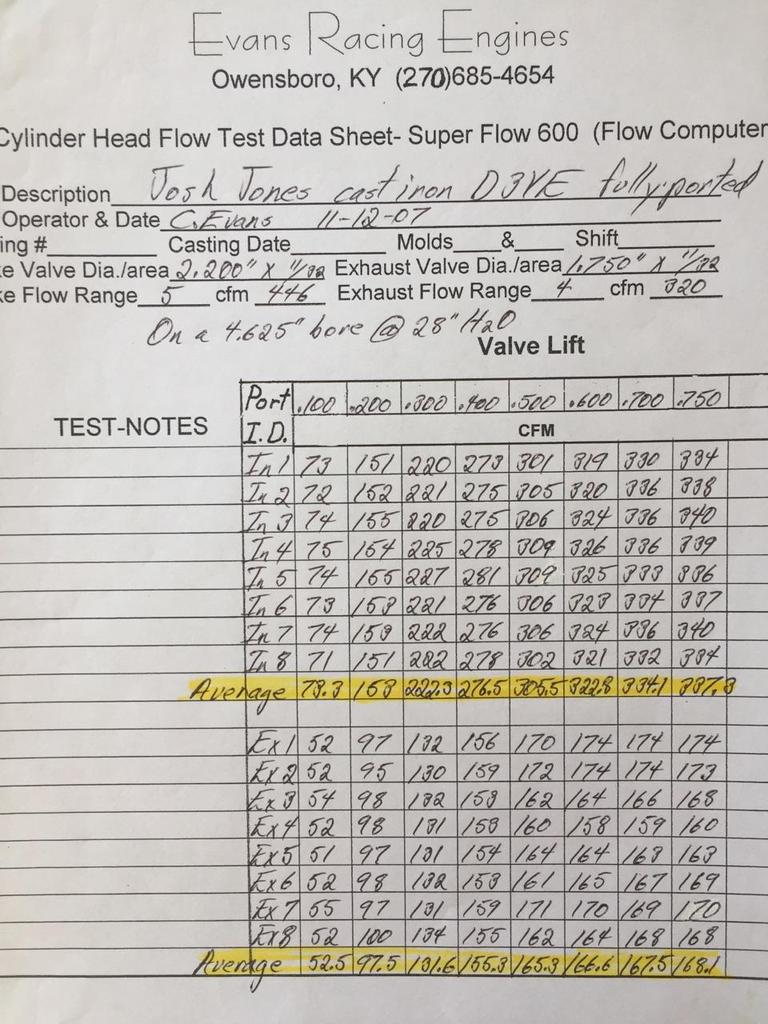 Evans Racing Engines
Owensboro, KY (270)685-4654
Cylinder Head Flow Test Data Sheet- Super Flow 600 (Flow Computer
Description Josh Jones cast iron D3VE fully ported
Operator & Date C. Evans 11-12-07
ing # Casting Date Molds & Shift
ke Valve Dia./area 2.200" X 11/32 Exhaust Valve Dia./area 1.750" X 11/32
ke Flow Range 5 cfm 446 Exhaust Flow Range 4 cfm 320
On a 4.625" bore @ 28" H2O
Valve Lift
TEST-NOTES
Port I.D. .100 .200 .300 .400 .500 .600 .700 .750
CFM
In 1 73 151 220 273 301 319 330 334
In 2 72 152 221 275 305 320 336 338
In 3 74 155 220 275 306 324 336 340
In 4 75 154 225 278 309 326 336 339
In 5 74 155 227 281 309 325 333 336
In 6 73 153 221 276 306 323 334 337
In 7 74 153 222 276 306 324 336 340
In 8 71 151 222 278 302 321 332 334
Average 73.3 153 222.3 276.5 305.5 322.8 334.1 337.3
Ex 1 52 97 132 156 170 174 174 174
Ex 2 52 95 130 159 172 174 174 173
Ex 3 54 98 132 153 162 164 166 168
Ex 4 52 98 131 153 160 158 159 160
Ex 5 51 97 131 154 164 164 163 163
Ex 6 52 98 132 153 161 165 167 169
Ex 7 55 97 131 159 171 170 169 170
Ex 8 52 100 134 155 162 164 168 168
Average 52.5 97.5 131.6 155.3 165.3 166.6 167.5 168.1